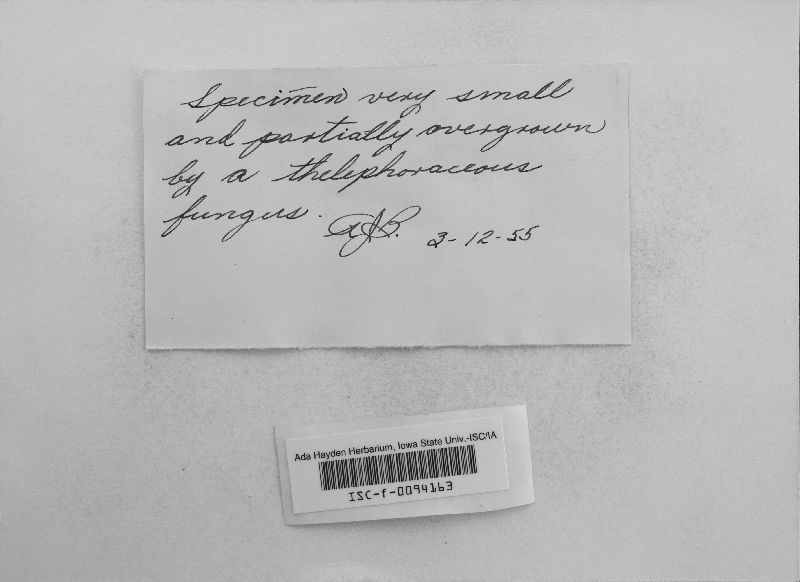 Specimen very small
and partially overgrown
by a thelephoraceous
fungus.
3-12-55
Ada Hayden Herbarium, Iowa State Univ.-ISC/IA
ISC-f-0094163